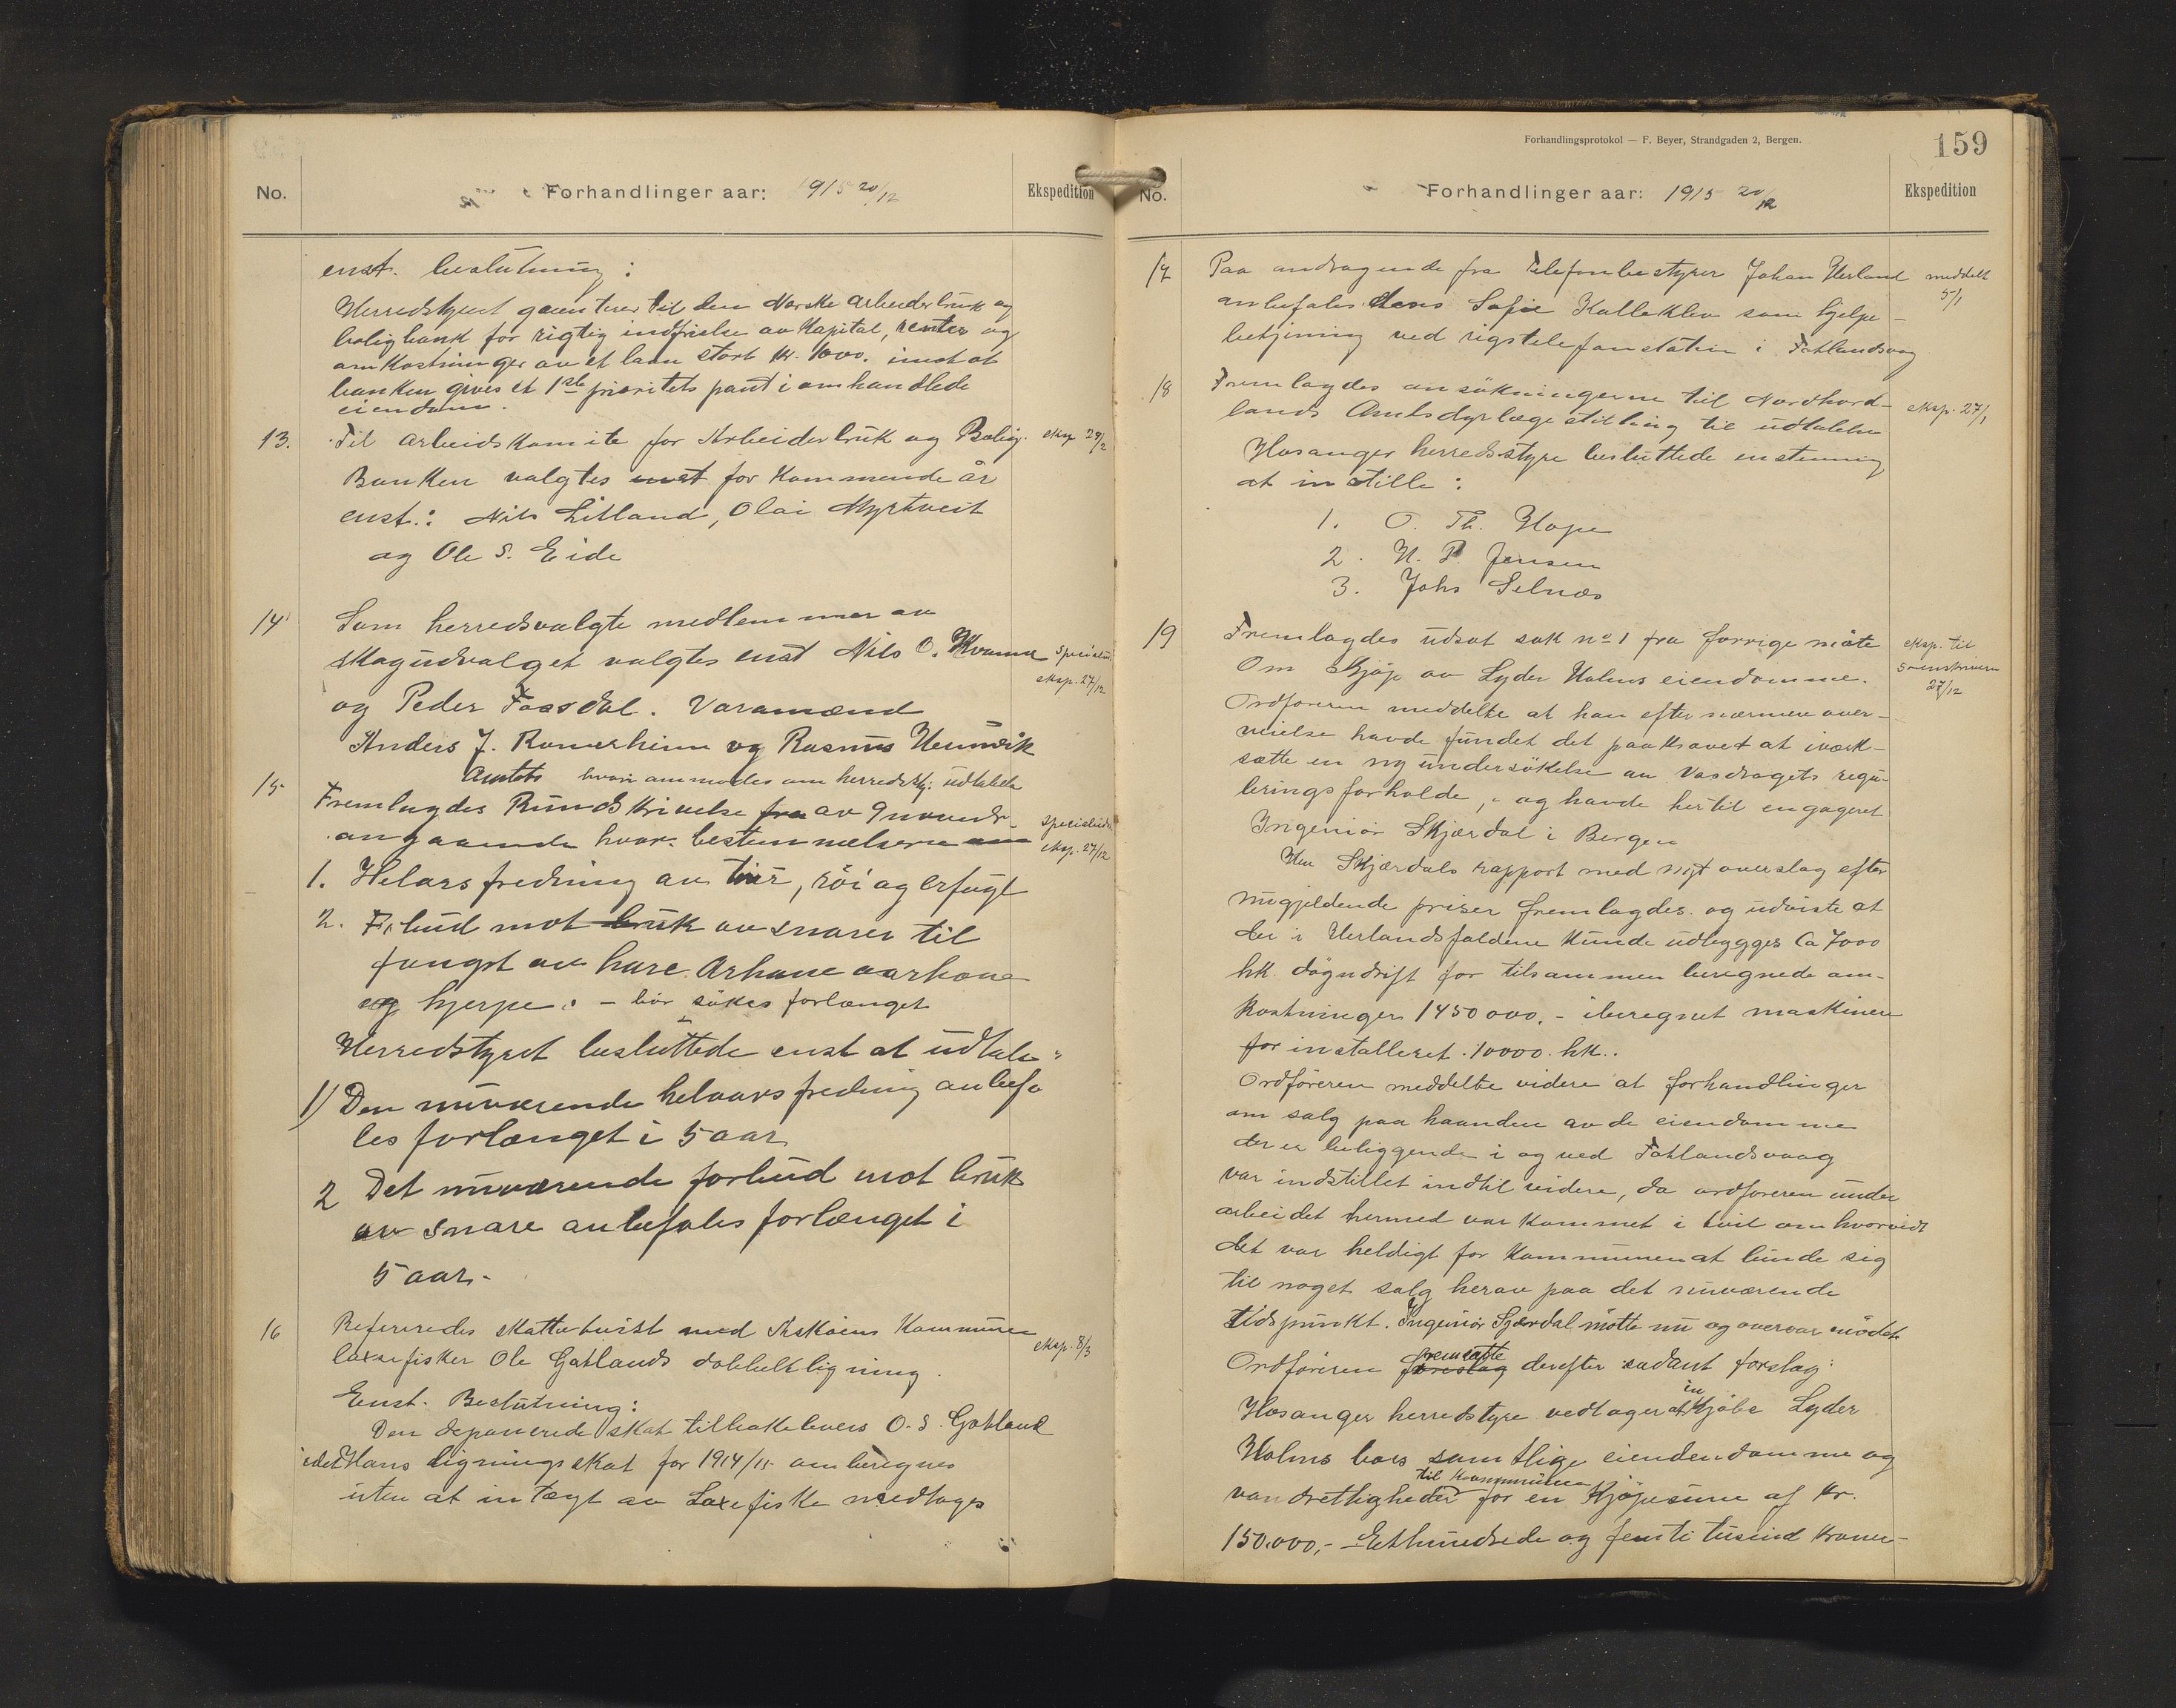 No.
Forhandlinger aar: 1915 20/12
Ekspedition
enst. beslutning:
Herredstyret garenterer til den Norske Arbeiderbruk og
boligbank for rigtig indfrielse av Kapital, renter og
omkostninger av et laan stort kr. 1000. imot at
banken gives et 1ste prioritets pant i omhandlede
eiendom.
13. Til Arbeidskomite for Arbeiderbruk og Bolig- eksp 29/2
Banken valgtes enst for kommende år
enst.: Nils Litland, Olai Myrtveit
og Ole S. Eide
14 Som herredsvalgte medlemmer av
skogudvalget valgtes enst Nils O. Kvamme
eksp. 27/12
og Peder Fossdal. Varamænd
Anders J. Romerheim og Rasmus Hennvik
Amtets hvori anmodes om herredstyr. udtalelse
15 Fremlagdes Rundskrivelse fra av 9 novembr.
angaaende hvor. bestemmelserne om
eksp. 27/12
1. Helaarsfredning av tiur, röi og erfugl
2. Forbud mot bruk av snarer til
fangst av hare. Arhane aarhöne
og hjerpe. - bör søkes forlænget
Herredstyret besluttede enst at udtale:
1) Den nuværende helaarsfredning anbefa
les forlænget i 5 aar
2 Det nuværende forbud mot bruk
av snare anbefales forlænget i
5 aar.
16 Refereredes skattetvist med Askøens Kommune
eksp. 8/3
laxefisker Ole Gatlands dobbeltligning.
Enst. Beslutning:
Den deponerede skat tilbakeleveres O. S. Gatland
idet Hans ligningsskat for 1914/15 omberegnes
uten at intægt av Laxefiske medtages
Forhandlingsprotokol — F. Beyer, Strandgaden 2, Bergen.
159
No.
Forhandlinger aar: 1915 20/12
Ekspedition
17 Paa andragende fra Telefonbestyrer Johan Herland meddelt
5/1
anbefales Sofie Kalleklev som hjelpe-
betjening ved rigstelefonstation i Fotlandsvaag
18 Fremlagdes ansökningerne til Nordhord- eksp. 27/1
lands Amtsdyrlægestilling til udtalelse
Hosanger herredsstyre besluttede enstemmig
at instille:
1. O. Th. Hope
2. N. P. Jensen
3. Johs Selnæs
19 Fremlagdes udsat sak no 1 fra forrige möte eksp. til
Sorenskriveren
27/12
Om Kjøp av Lyder Holms eiendomme.
Ordföreren meddelte at han efter nærmere over-
veielse havde fundet det paakrævet at iværk-
sætte en ny undersökelse av Vasdragets regu-
leringsforholde, og havde hertil engageret
Ingeniör Skjærdal i Bergen
Hr. Skjærdals rapport med nyt overslag efter
nugjeldende priser fremlagdes og udviste at
der i Herlandsfaldene kunde udbygges Ca 7000
hk. dögndrift for tilsammen beregnede om-
kostninger 1450000,- iberegnet maskineri
for installeret 10000 hk..
Ordföreren meddelte videre at forhandlinger
om salg paa haanden av de eiendomme
der er beliggende i og ved Fotlandsvaag
var indstillet indtil videre, da ordføreren under
arbeidet hermed var kommet i tvil om hvorvidt
det var heldigt for Kommunen at binde sig
til noget salg herav paa det nuværende
tidspunkt. Ingeniör Sjærdal mötte nu og overvar mödet
Ordföreren foreslog fremsatte derefter sådant forslag:
Hosanger herredstyre vedtager at inkjöbe Lyder
Holms bos samtlige eiendendomme og
vandrettigheder til Kommunen for en Kjöpesum af Kr.
150.000,- Ethundrede og femti tusind kroner-